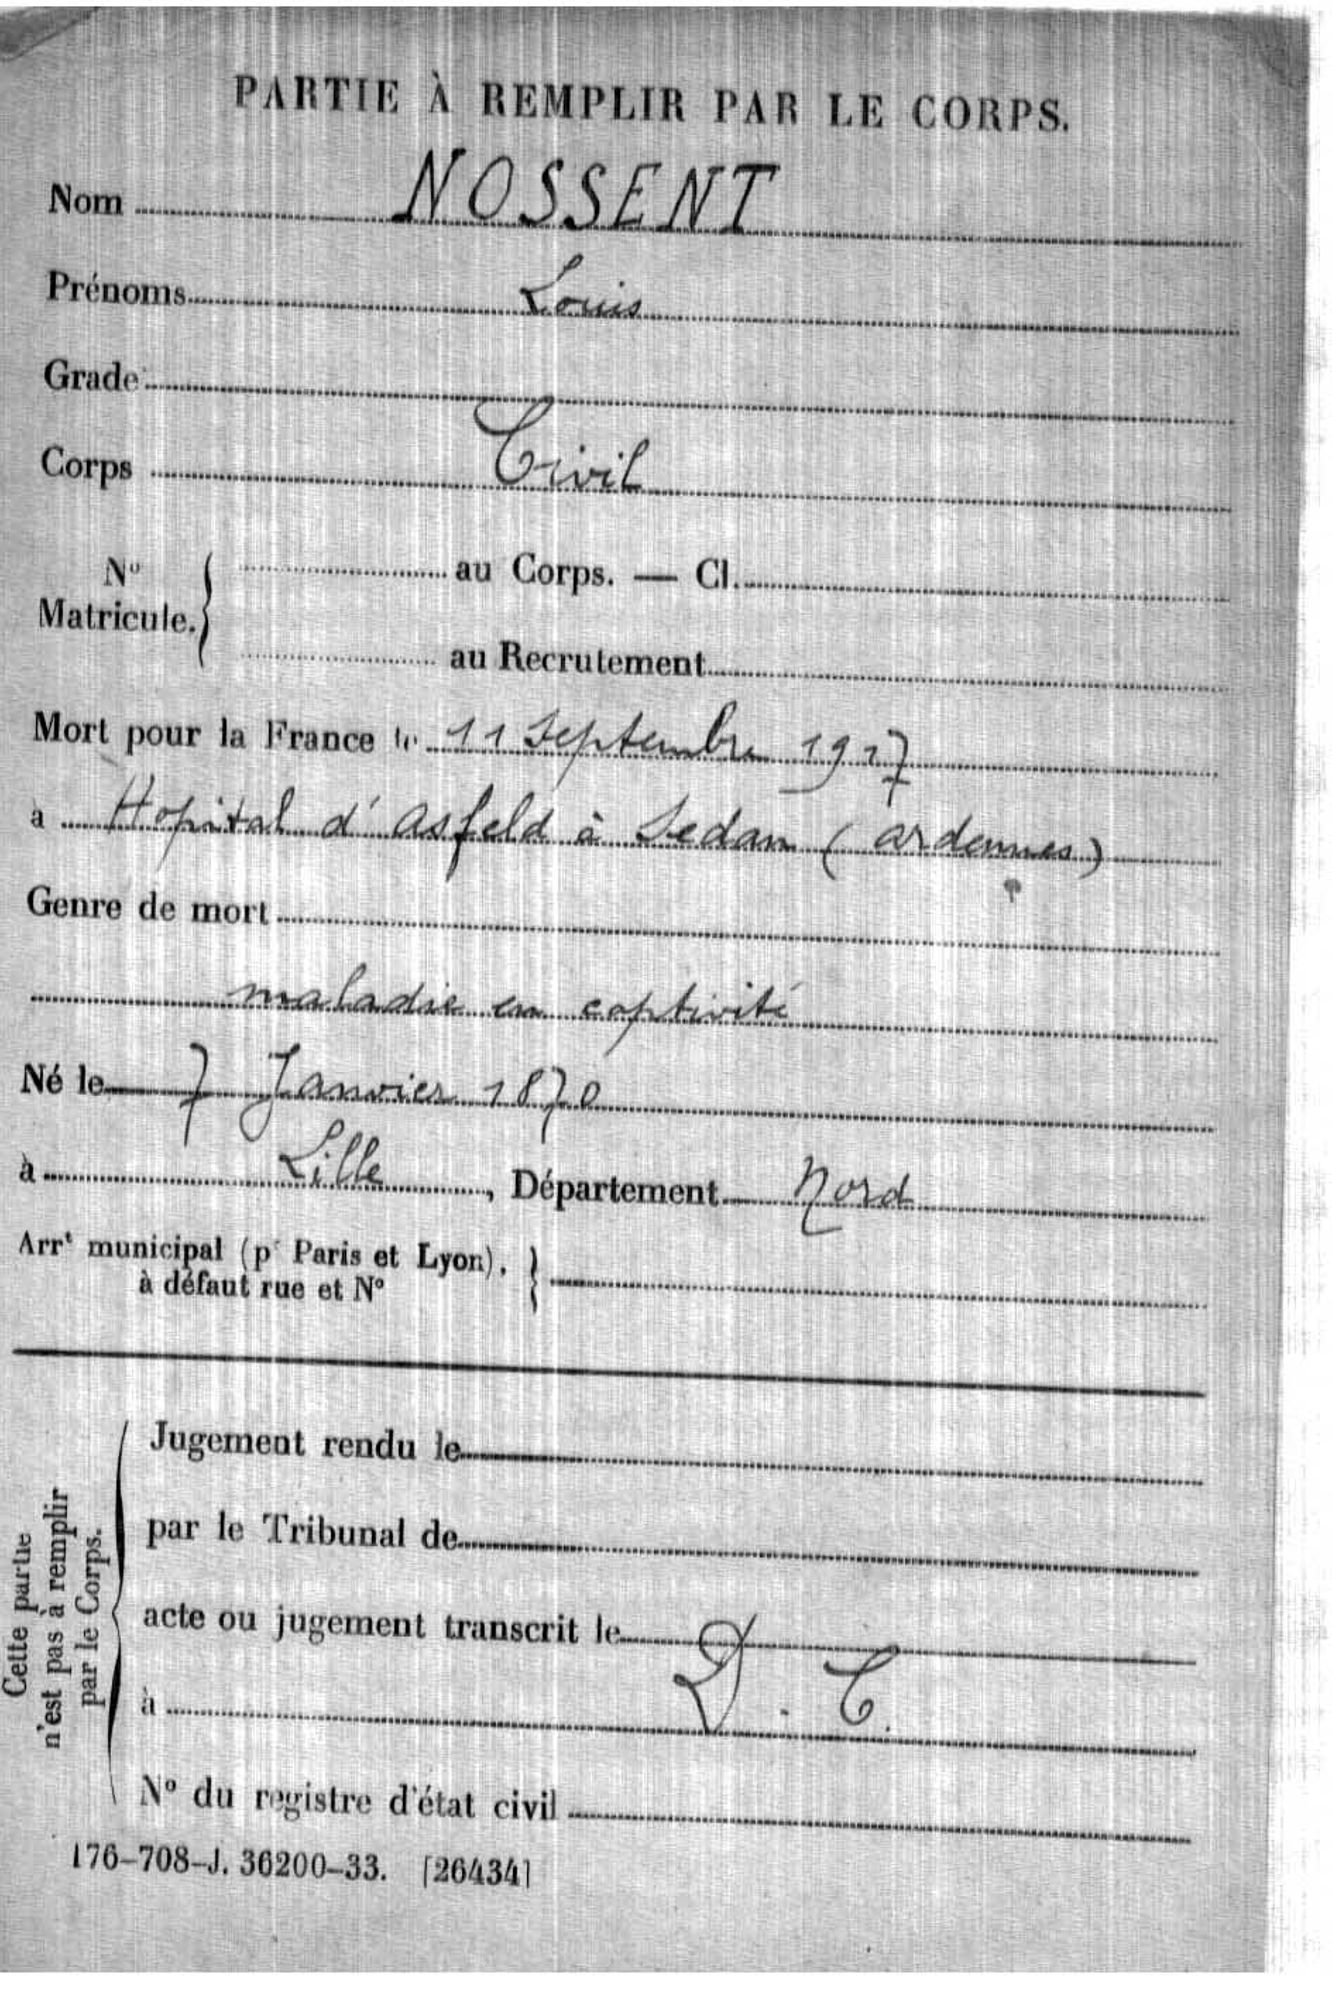 PARTIE À REMPLIR PAR LE CORPS.
Nom NOSSENT
Prénoms Louis
Grade
Corps Civil
Nº Matricule. au Corps. — Cl.
au Recrutement
Mort pour la France le 11 Septembre 1917
à Hopital d'Asfeld à Sedan (Ardennes)
Genre de mort
maladie en captivité
Né le 7 Janvier 1870
à Lille, Département Nord
Arrt municipal (pr Paris et Lyon),
à défaut rue et Nº
Cette partie
n'est pas à remplir
par le Corps.
Jugement rendu le
par le Tribunal de
acte ou jugement transcrit le
à D. C.
Nº du registre d'état civil
176-708-J. 36200-33. [26434]